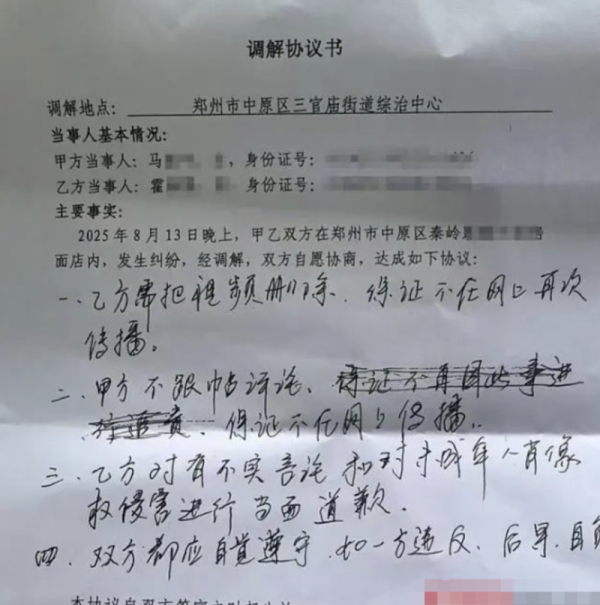 调解协议书
调解地点： 郑州市中原区三官庙街道综治中心
当事人基本情况：
甲方当事人：马 ，身份证号：
乙方当事人：霍 ，身份证号：
主要事实：
2025年8月13日晚上，甲乙双方在郑州市中原区秦岭
面店内，发生纠纷，经调解，双方自愿协商，达成如下协议：
一、乙方需把视频删除、保证不在网上再次
传播。
二、甲方不跟帖评论、保证不再因此事进
行追责、保证不在网上传播。
三、乙方对有不实言论和对未成年人肖像
权侵害进行当面道歉.
四、双方都应自觉遵守，如一方违反、后果自